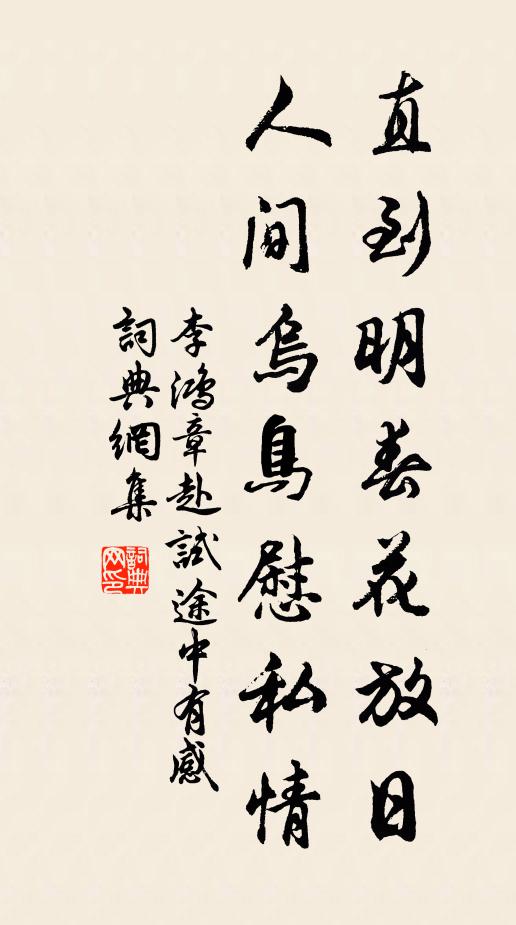 直到明春花放日
人间烏鳥慰私情
李鴻章赴試途中有感
詞典網集
詞典网印